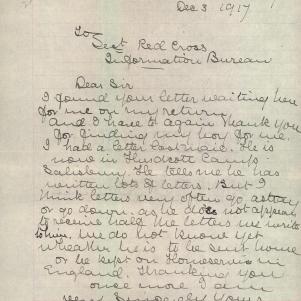 Dec 3 1917
To
Sect Red Cross
Information Bureau
Dear Sir
I found your letter waiting here
for me on my return
and I have to again thank you
for finding my boy for me.
I had a letter last mail. He is
now in Hurdcott Camp.
Salisbury. He tells me he has
written lots of letters. But I
think letters very often go astray
or go down as he does not appear
to receive half the letters we write
to him. We do not know yet
whether he is to be sent home
or be kept on Homeservice in
England. Thanking you
once more I am
Yours